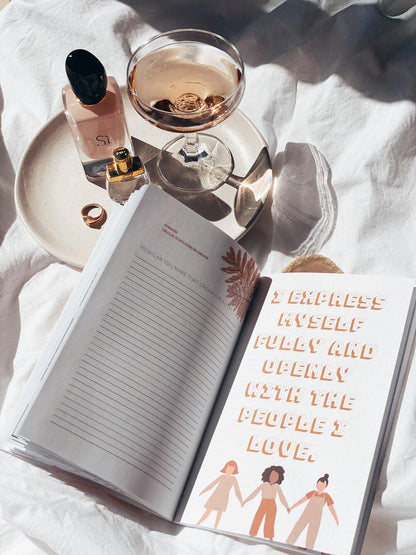 Sì
HOW CAN YOU MAKE THAT DREAM A
I EXPRESS
MYSELF
FULLY AND
OPENLY
WITH THE
PEOPLE I
LOVE.